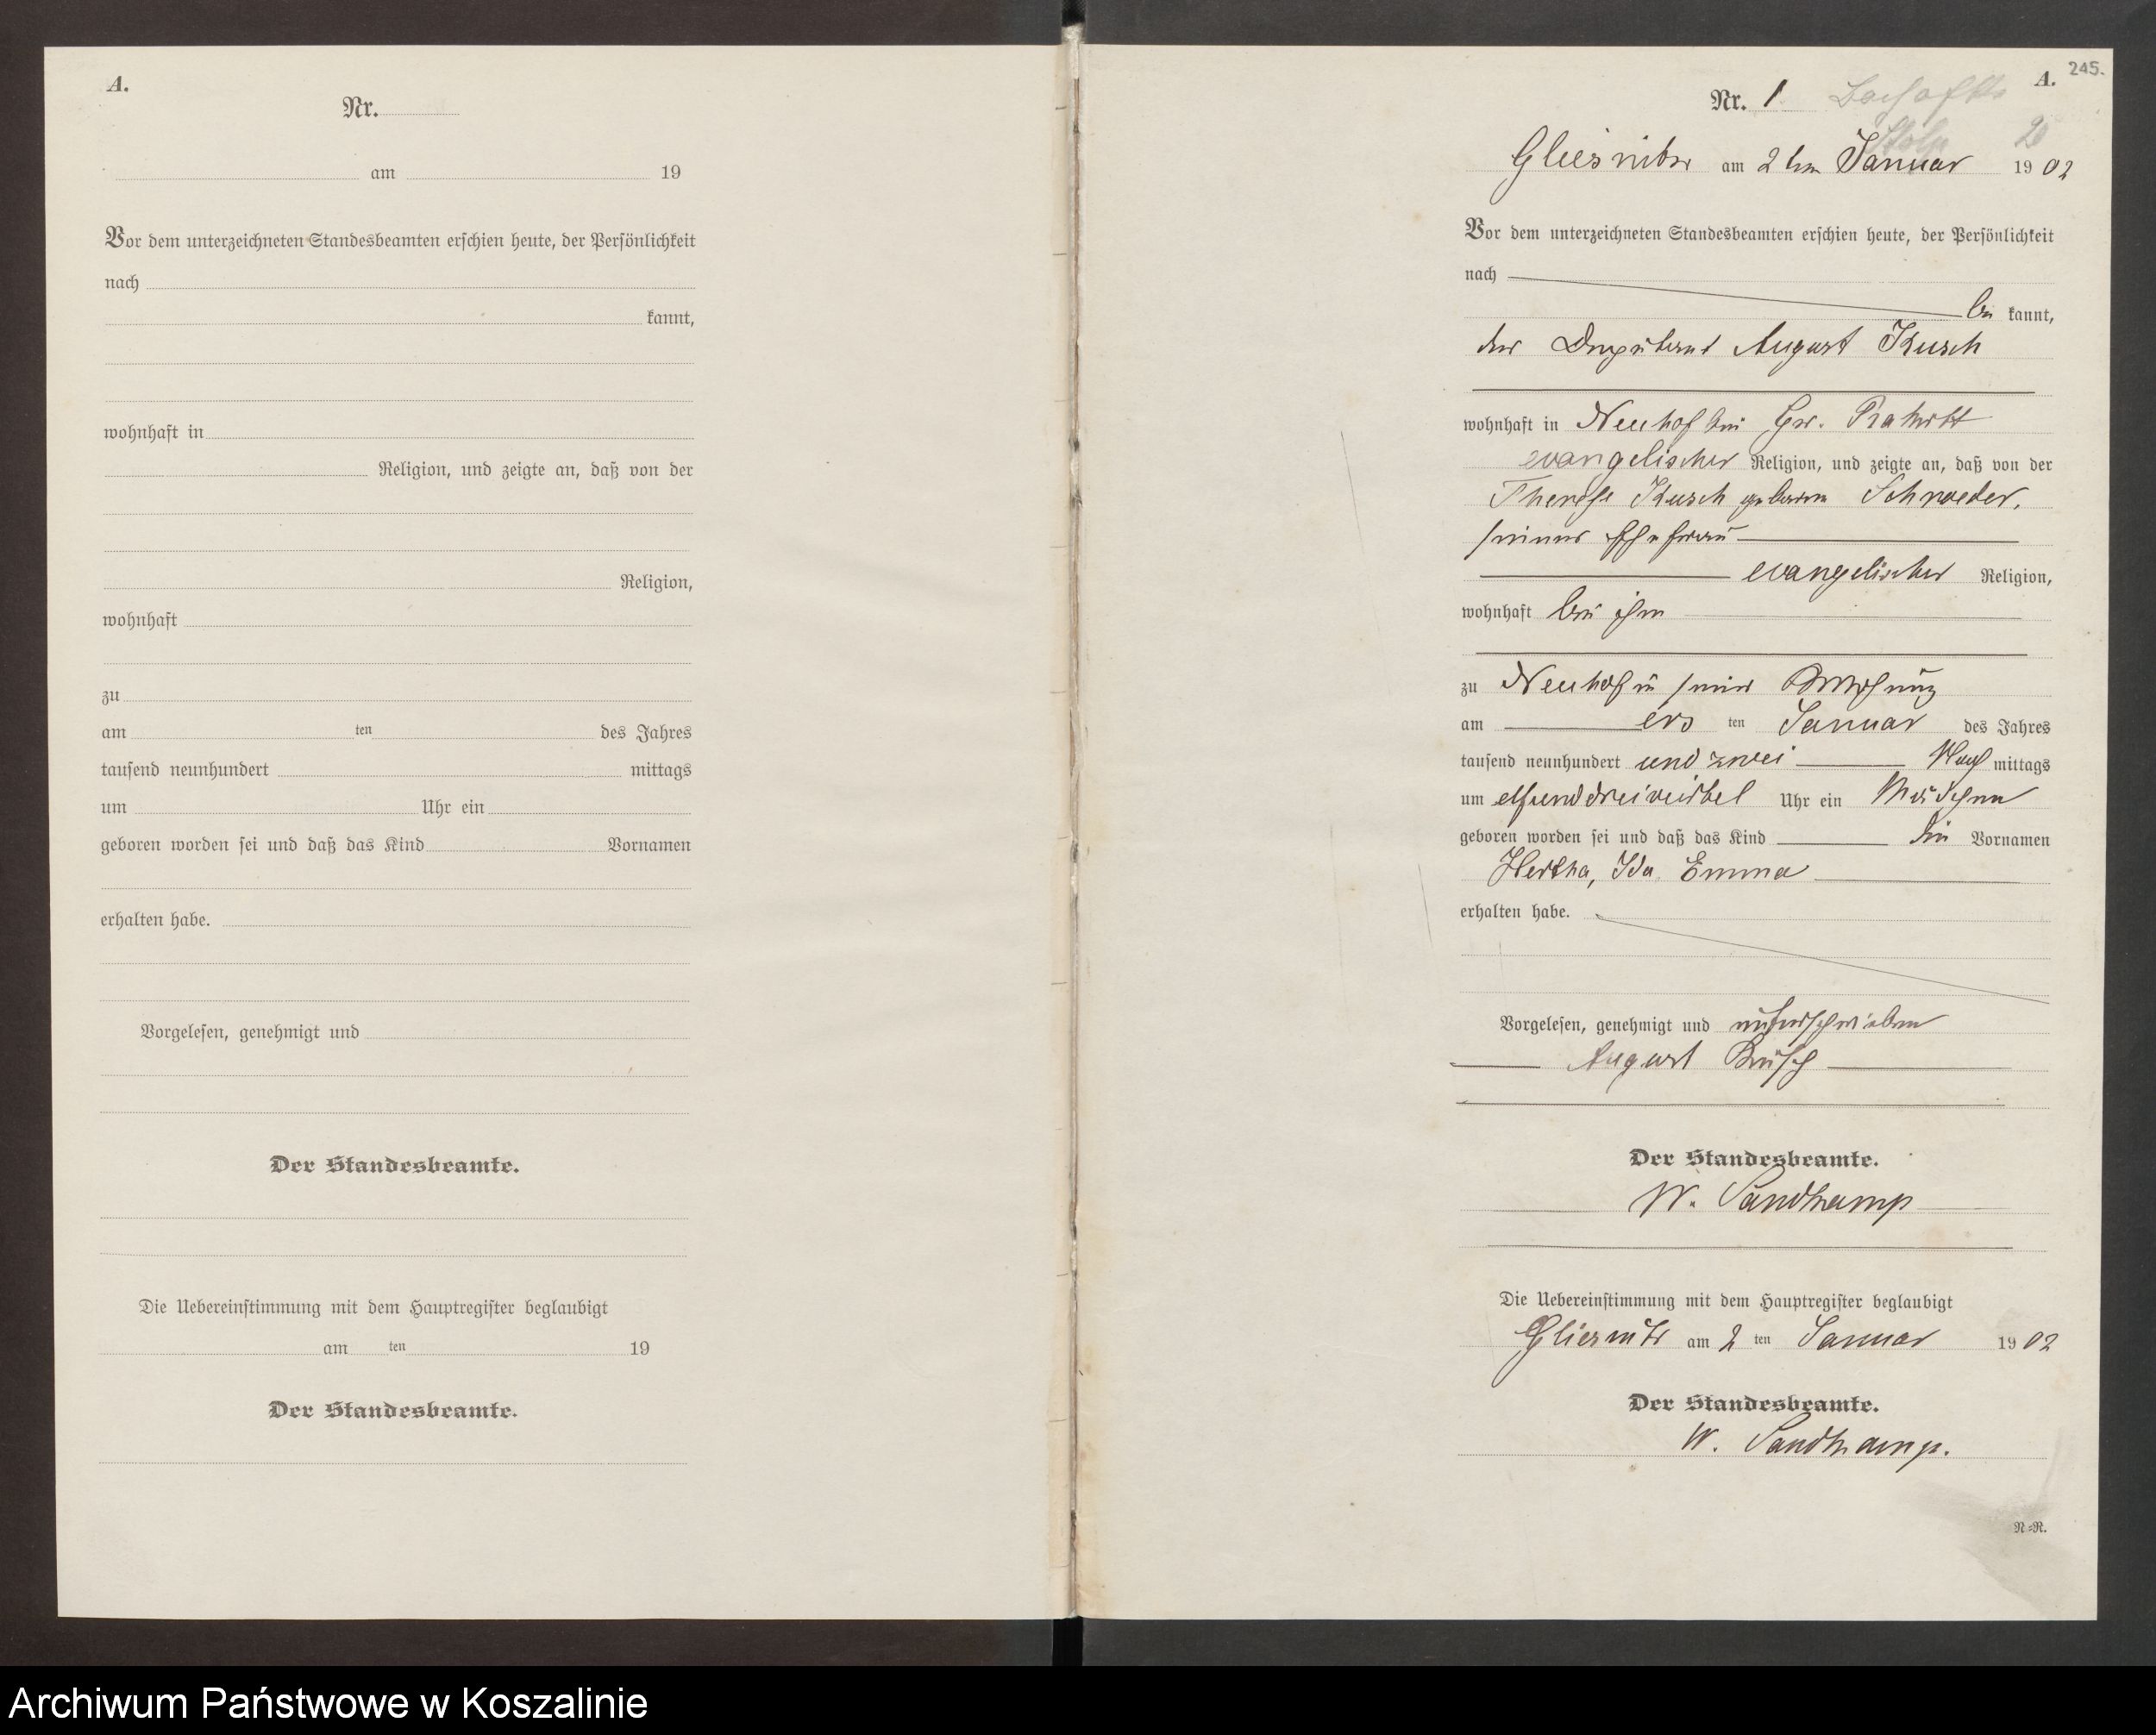 A.
Nr.
am 19
Vor dem unterzeichneten Standesbeamten erschien heute, der Persönlichkeit
nach
kannt,
wohnhaft in
Religion, und zeigte an, daß von der
Religion,
wohnhaft
zu
am ten des Jahres
tausend neunhundert mittags
um Uhr ein
geboren worden sei und daß das Kind Vornamen
erhalten habe.
Vorgelesen, genehmigt und
Der Standesbeamte.
Die Uebereinstimmung mit dem Hauptregister beglaubigt
am ten 19
Der Standesbeamte.
A. 245.
Nr. 1
am 2ten Januar 1902
Vor dem unterzeichneten Standesbeamten erschien heute, der Persönlichkeit
nach
be kannt,
der Deputant August Kusch
wohnhaft in Neuhof bei Gr.
evangelischer Religion, und zeigte an, daß von der
Therese Kusch geborene Schroeder,
seiner Ehefrau
evangelischer Religion,
wohnhaft bei ihm
zu Neuhof in seiner Wohnung
am ers ten Januar des Jahres
tausend neunhundert und zwei Nach mittags
um elfunddreiviertel Uhr ein Mädchen
geboren worden sei und daß das Kind die Vornamen
Hertha, Ida Emma
erhalten habe.
Vorgelesen, genehmigt und unterschrieben
August Kusch
Der Standesbeamte.
W. Sandkamp
Die Uebereinstimmung mit dem Hauptregister beglaubigt
am 2 ten Januar 1902
Der Standesbeamte.
W. Sandkamp.
N.=R.
Archiwum Państwowe w Koszalinie